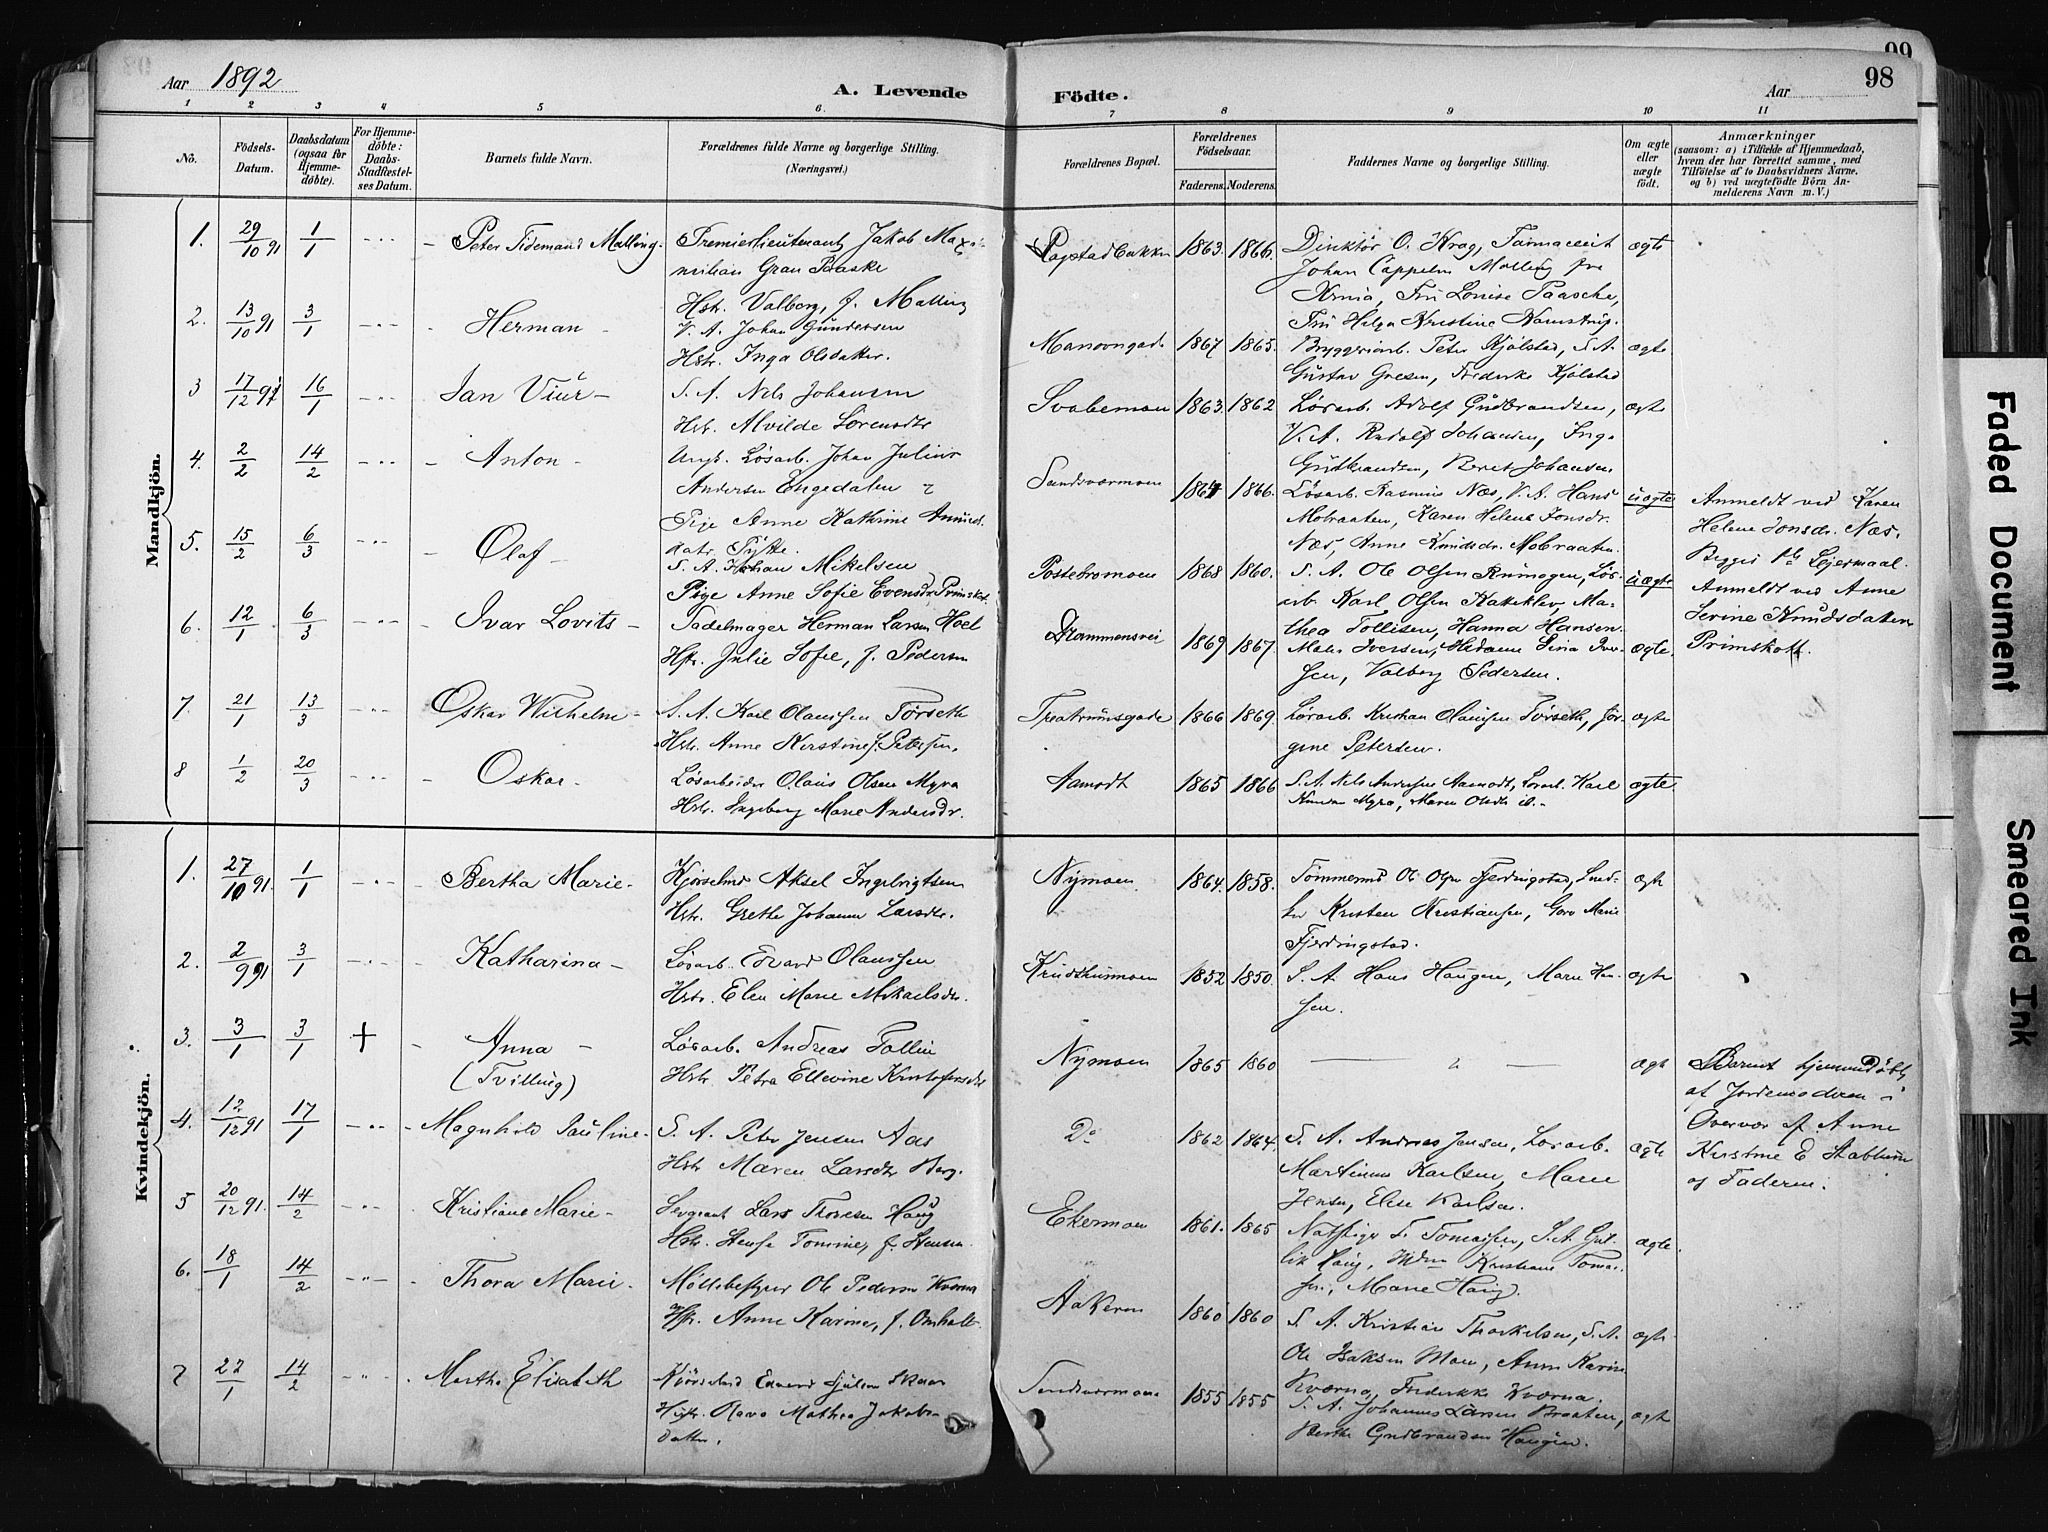 Aar 1892
A. Levende Födte.
Aar
98
99
1 2 3 4 5 6. 7 8 9 10 11
No.
Födsels-Datum.
Daabsdatum (ogsaa for Hjemme-døbte).
For Hjemme-døbte: Daabs-Stadfæstel-ses Datum.
Barnets fulde Navn.
Forældrenes fulde Navne og borgerlige Stilling. (Næringsvei.)
Forældrenes Bopæl.
Forældrenes Födselsaar.
Faderens. Moderens.
Faddernes Navne og borgerlige Stilling.
Om ægte eller uægte födt.
Anmærkninger
(saasom: a) i Tilfælde af Hjemmedaab,
hvem der har forrettet samme, med
Tilföielse af to Daabsvidners Navne,
og b) ved uægtefödte Börn An-
melderens Navn m. V.)
Mandkjön.
1. 29/10 91 1/1 - Peter Tidemand Malling. Premierlieutenant Jakob Maxi-
milian Gran Paaske
Hstr. Valborg, f. Malling
1863. 1866. Direktör O. Krag, Farmaceut
Johan Cappelen Malling fra
Krnia, Fru Louise Paasche,
Fru Helga Kristine Namstrup.
ægte
2. 13/10 91 3/1 - Herman - V. A. Johan Gundersen
Hstr. Inga Olsdatter.
1867 1865. Bryggeriarb. Peter Kjølstad, S. A.
Gustav Gresen, Frederikke Kjølstad
ægte
3 17/12 91 16/1 - Jan Viur - S. A. Nils Johansen
Hstr. Alvilde Lorensdtr
Svabemoen 1863. 1862 Løsarb. Adolf Gudbrandsen,
V. A. Rudolf Johansen, Inga
Gudbrandsen, Berit Johansen
ægte
4. 2/2 14/2 - Anton - Ungk. Løsarb. Johan Julius
Andersen Engedalen &
Pige Anne Kathrine Amund-
datr.
Sandsværmoen 1864 1866. Løsarb. Rasmus Næs, V. A. Hans
Mobraaten, Karen Helene Jonsdr.
Næs, Anne Knudsdr. Mobraaten.
uægte
Anmeldt ved Karen
Helene Jonsdr. Næs.
Begges 1ste Leiermaal.
5. 15/2 6/3 - Olaf - S. A. Johan Mikelsen
Pige Anne Sofie Evensdr. Primskot.
Postebromoen 1868 1860. S. A. Ole Olsen Rumogen, Løs-
arb. Karl Olsen Katteklev, Ma-
thea Tollisen, Hanna Hansen.
uægte
Anmeldt ved Anne
Serine Knudsdatter
Primskott.
6. 12/1 6/3 - Ivar Lovits - Sadelmager Herman Larsen Hoel
Hstr. Julie Sofie, f. Pedersen
Drammensvei 1869 1867. Maler Iversen, Madame Lina Iver-
sen, Valborg Pedersen.
ægte.
7. 21/1 13/3 - Oskar Wilhelm - S. A. Karl Olaussen Torseth
Hstr. Anne Kerstine f. Petersen.
Treatrumsgade 1866 1869. Løsarb. Kristian Olaussen Torseth, Jør-
gine Petersen.
ægte
8 1/2 20/3 - Oskar - Løsarbeider Olaus Olsen Myra
Hstr. Ingeborg Marie Andersdr.
Aamodt 1865 1866 S. A. Nils Andersen Aamodt, Løsarb. Karl
Myra, Maren Olsdtr ib. -
ægte
Kvindekjön.
1. 27/10 91. 1/1 - Bertha Marie - Kjørselmd Aksel Ingebrigtsen
Hstr. Grethe Johanne Larsdtr.
Nymoen 1864. 1858. Tømmermd Ole Olsen Fjerdingstad, Sned-
ker Kristen Kristiansen, Goro Marie
Fjerdingstad.
ægte
2. 2/9 91 3/1 - Katharina - Løsarb. Edvard Olaussen
Hstr. Elen Marie Mikaelsdtr.
Krudthusmoen 1852 1850. S. A. Hans Haugen, Maren Han-
sen.
ægte
3. 3/1 3/1 + - Anna - Løsarb. Andreas Tollin
(Tvilling) Hstr. Petra Ellevine Kristofersdtr
Nymoen 1865 1860 — " — ægte
Barnet hjemmedøbt
af Jordemoderen i
Overvær af Anne
Kerstine E. Stablum
og Faderen.
4. 12/12 91 17/1 - Magnhild Pauline - S. A. Peter Jensen Aas
Hstr Maren Larsdtr Berg.
Do 1862 1864. S. A. Andreas Jensen, Løsarb.
Martinus Karlsen, Marie
Jensen, Elise Karlsen.
ægte
5 20/12 91. 14/2 - Kristiane Marie - Sergeant Lars Thoresen Haug
Hstr. Tomine, f. Stensen
Ekermoen 1861. 1865 T. Tomassen, S. A. Gul-
lik Haug, Mdm Kristiane Tomas-
sen, Marie Haug.
ægte.
6. 18/1 14/2 - Thora Marie - Møllebestyrer Ole Pedersen Kværna
Hstr. Anne Karine, f. Omholt.
Aakeren 1860 1860 S. A. Kristian Thorkelsen, S. A.
Ole Isaksen Moen, Anne Karine
Kværna, Frederikke Kværna.
ægte
7 22/1 14/2 - Marthe Elisabeth Kjørselmd Edvard Skaar
Hstr. Mathea Jakobs-
datter.
Sandsværmoen 1855 1855 S. A. Johannes Larsen Braaten,
Berthe Gudbrandsen Haugen.
ægte
Faded Document
Smeared Ink